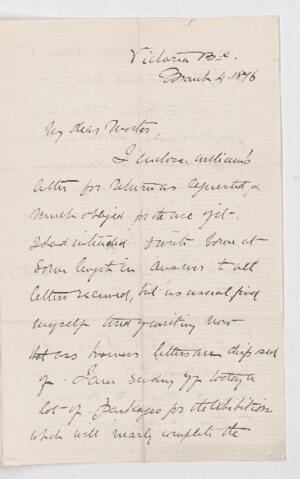 Victoria B.C.
March 4. 1876
My dear Mother,
I enclose William's
letter for return as requested, &
much obliged for the use of it.
I had intended to write home at
some length in answer to all
letters received, but as usual find
myself tired of writing now
as business letters are disposed
of. I am sending off today a
lot of packages for the Exhibition
which will nearly complete the